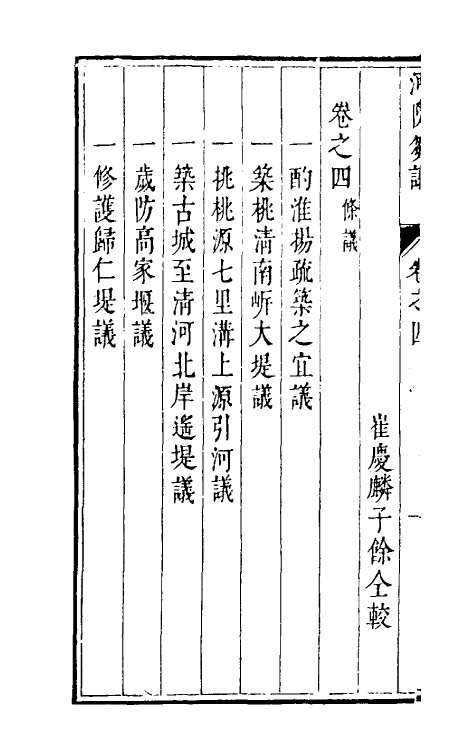 河防芻議
卷之四
一
崔慶麟子餘仝較
卷之四 條議
一酌淮揚疏築之宜議
一築桃清南岍大堤議
一挑桃源七里溝上源引河議
一築古城至清河北岸遙堤議
一歲防高家堰議
一修護歸仁堤議